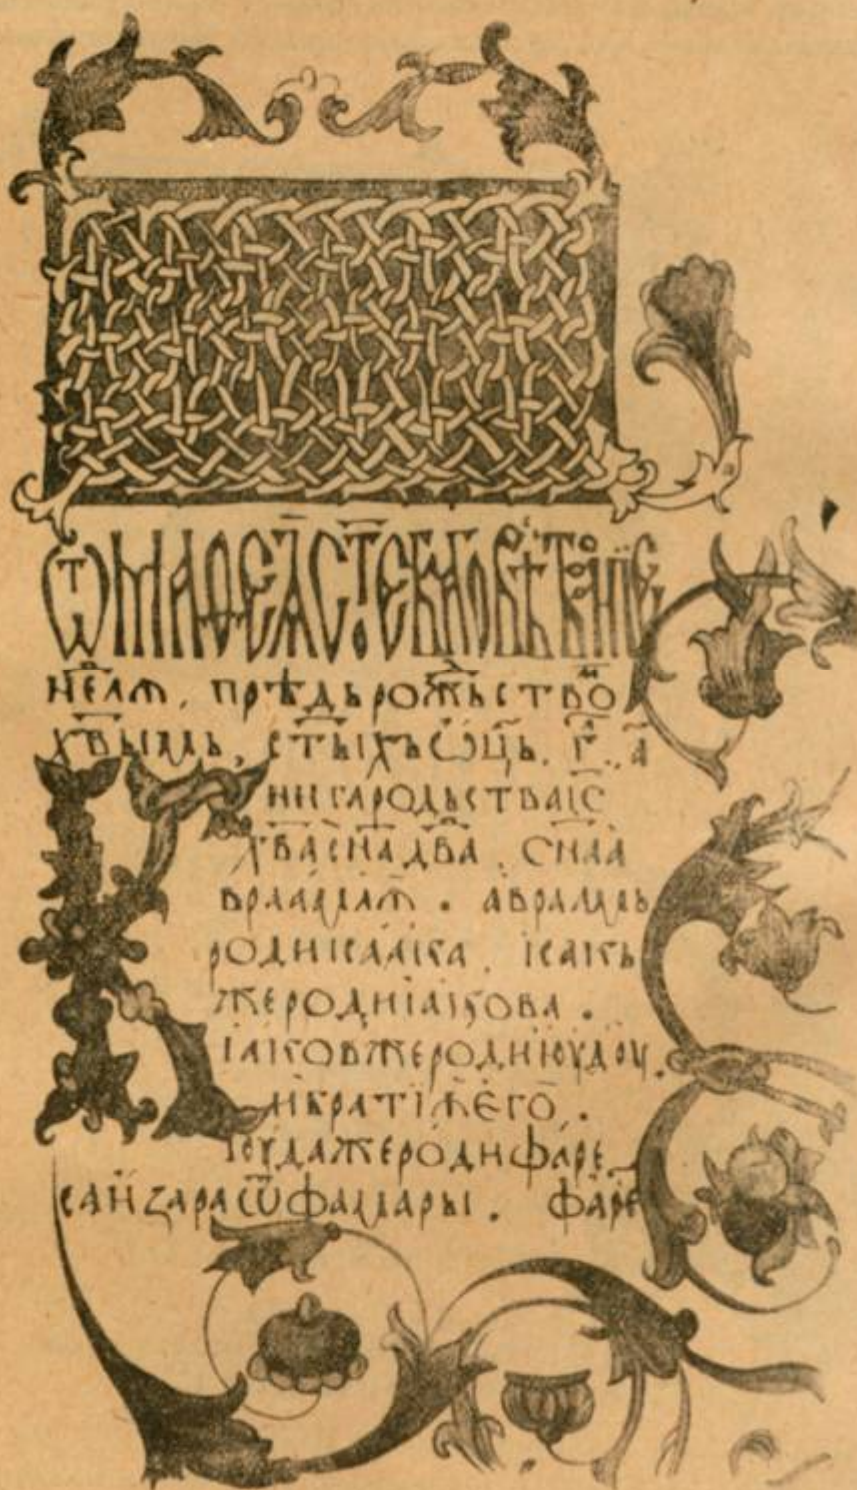 Ѿ МАѲЕꙖ СТ҃Е БЛ҃ГОВѢСТВОВАНЇЕ
НЕ҃ЛѦ. ПРѢДЬ РОЖЬСТВО
Х҃ВЫМЬ, СТ҃ЫХЪ Ѡ҃ЦЬ. Г҃Л А҃
НИГА РОДЬСТВА І҃С
Х҃ВА СН҃А ДВ҃А, СН҃А А
ВРААМЛѦ. АВРАМЬ
РОДИ ІСААКА, ІСАКЬ
ЖЕ РОДИ ІАКОВА.
ІАКОВ ЖЕ РОДИ ІОУДОУ.
И БРАТІЮ ЕГО.
ІОУДА ЖЕ РОДИ ФАРЕ
СА И ZАРА Ѿ ФАМАРЫ. ФАРЕ